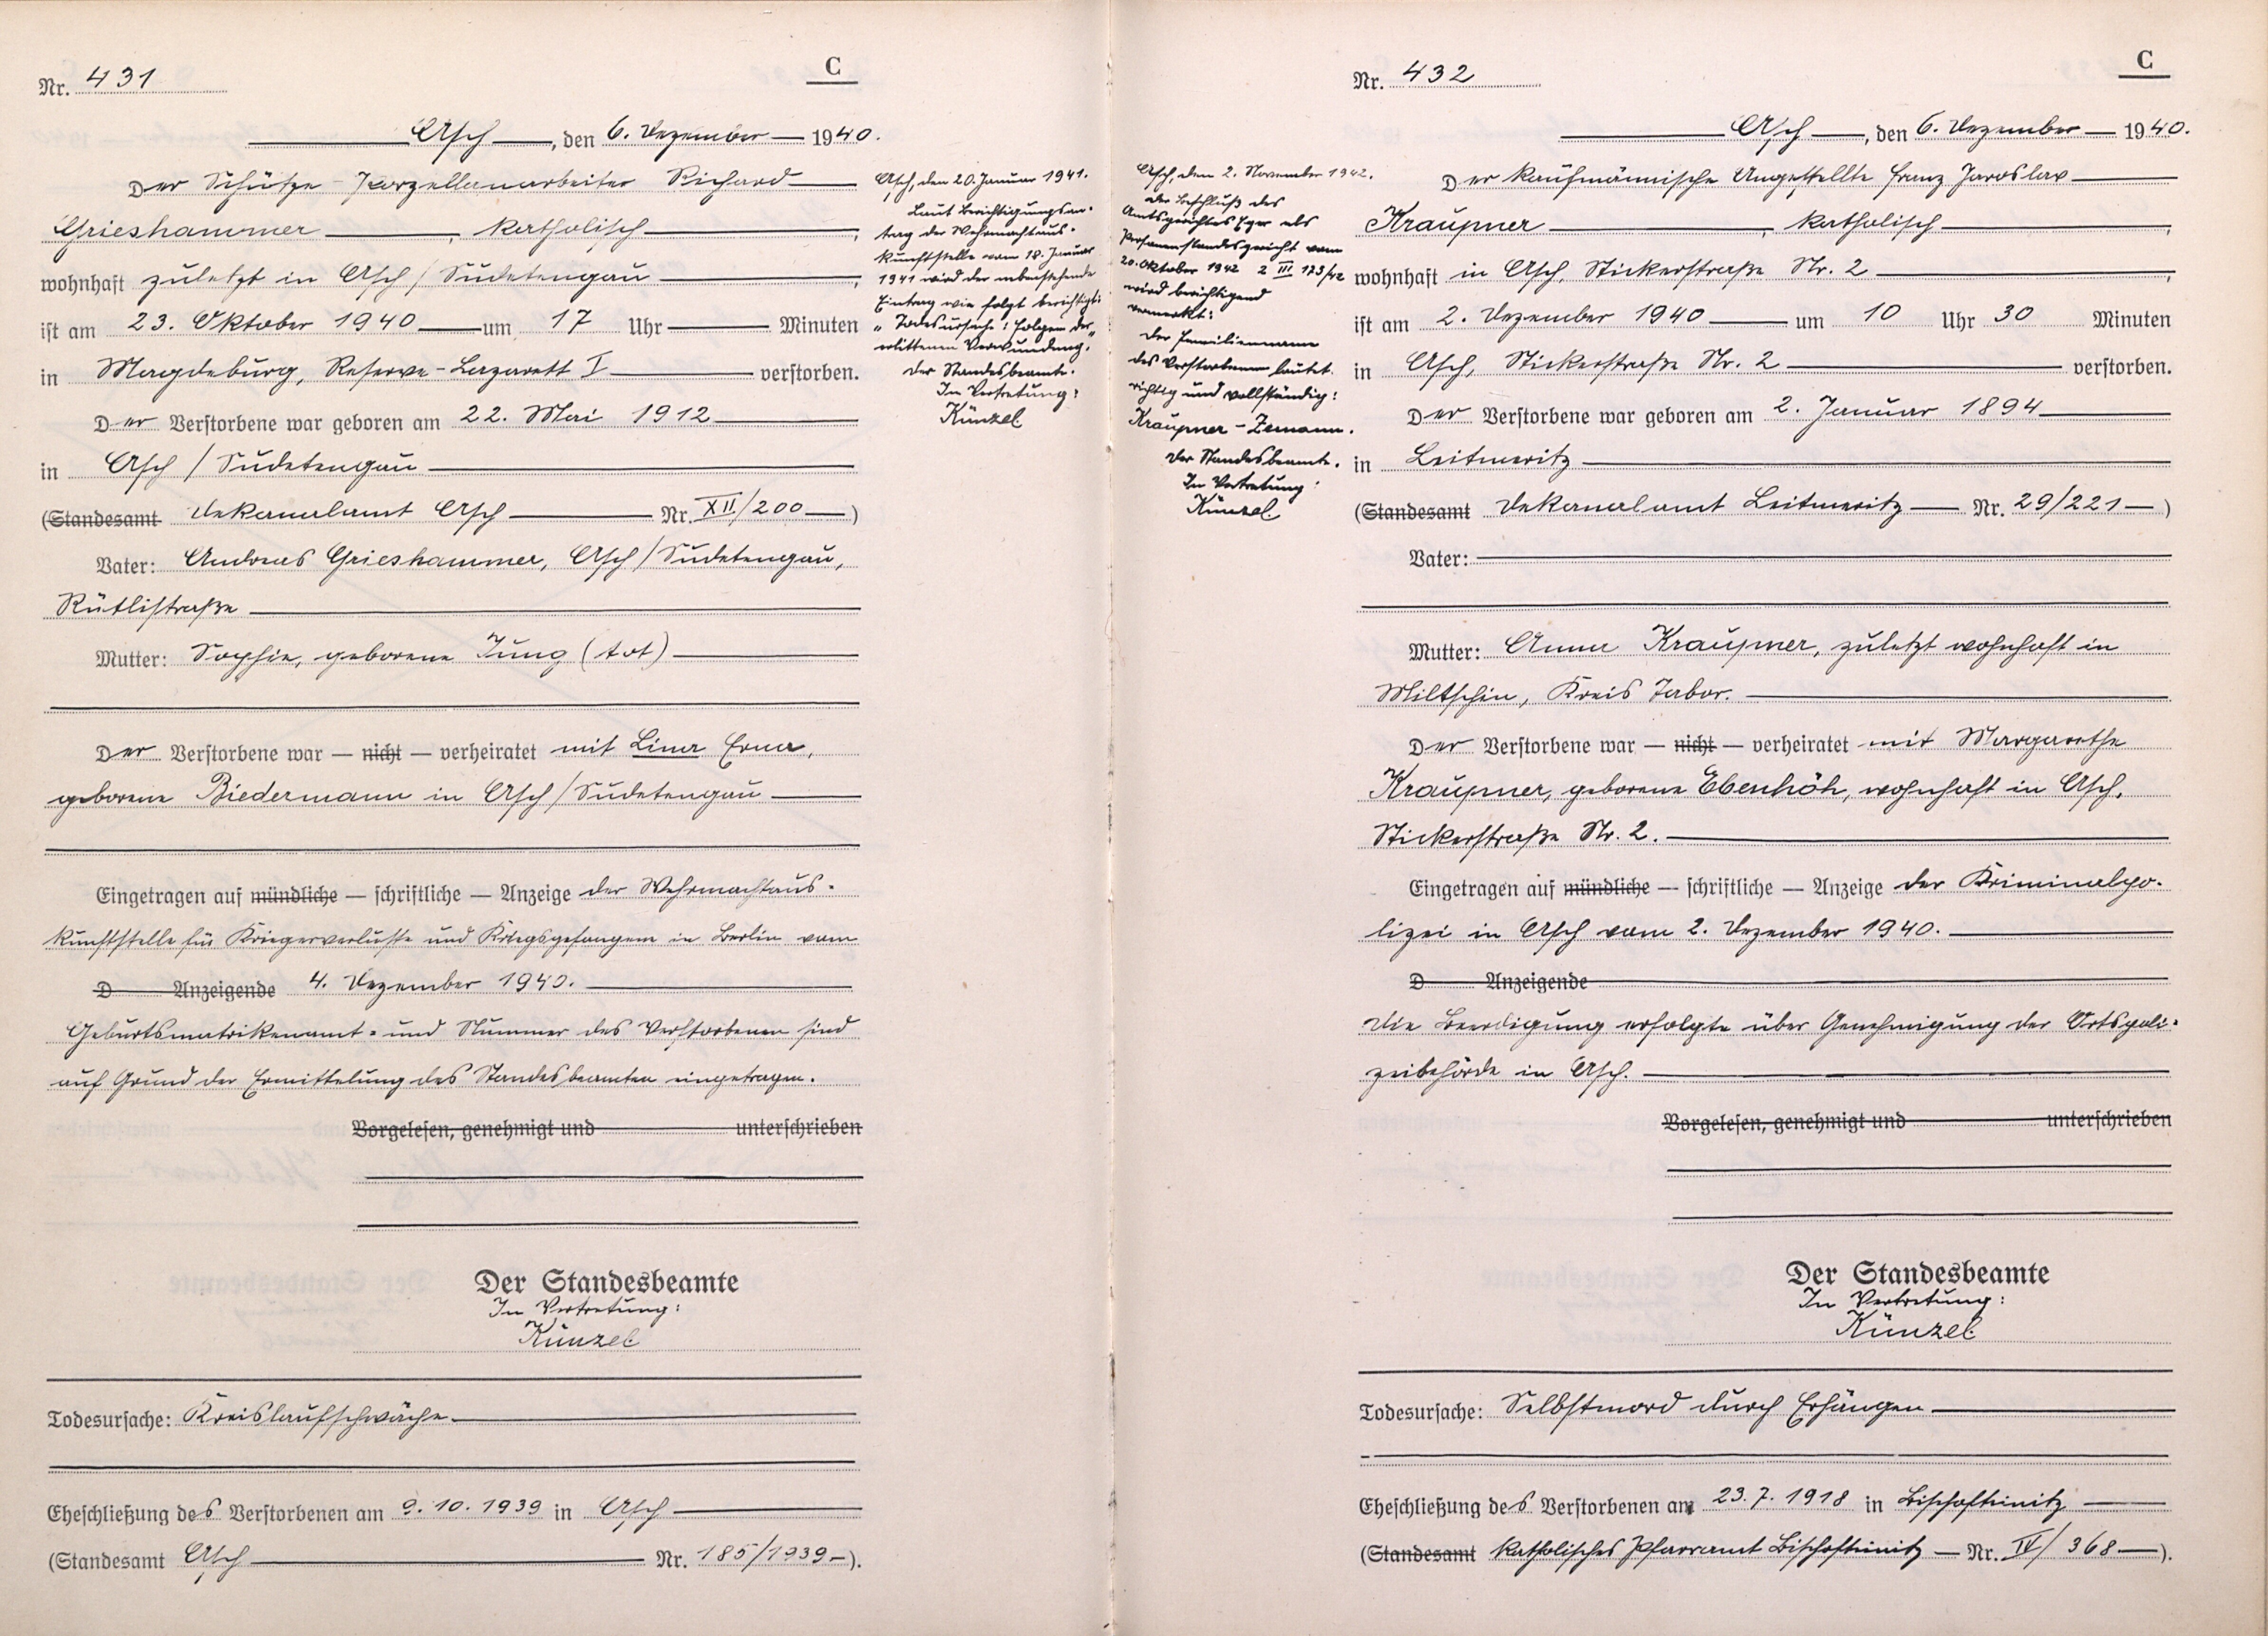 Nr. 431
C
Asch, den 6. Dezember 1940.
Der Schütze - Porzellanarbeiter Richard
Grieshammer, katholisch,
wohnhaft zuletzt in Asch / Sudetengau,
ist am 23. Oktober 1940 um 17 Uhr Minuten
in Magdeburg, Reserve-Lazarett I verstorben.
Der Verstorbene war geboren am 22. Mai 1912
in Asch / Sudetengau
(Standesamt Dekanalamt Asch Nr. XII/200)
Vater: Andreas Grieshammer, Asch / Sudetengau,
Rütlistraße
Mutter: Sophie, geborene Jung (tot)
Der Verstorbene war — nicht — verheiratet mit Lina Erna,
geborene Biedermann in Asch / Sudetengau
Eingetragen auf mündliche — schriftliche — Anzeige der Wehrmachtaus-
kunftstelle für Kriegerverluste und Kriegsgefangene in Berlin vom
D Anzeigende 4. Dezember 1940.
Geburtsmatrikenamt- und Nummer des Verstorbenen sind
auf Grund der Ermittelung des Standesbeamten eingetragen.
Vorgelesen, genehmigt und unterschrieben
Der Standesbeamte
In Vertretung:
Künzel
Todesursache: Kreislaufschwäche
Eheschließung des Verstorbenen am 9.10.1939 in Asch
(Standesamt Asch Nr. 185/1939).
Asch, den 20. Januar 1941.
Laut Berichtigungsan-
trag der Wehrmachtaus-
kunftstelle vom 18. Januar
1941 wird der nebenstehende
Eintrag wie folgt berichtigt:
"Todesursache: Folgen der
erlittenen Verwundung."
Der Standesbeamte.
In Vertretung:
Künzel
Asch, den 2. November 1942.
Der Beschluß des
Amtsgerichtes Eger als
Personenstandsgericht vom
20. Oktober 1942 2 III 123/42
wird berichtigend
vermerkt:
Der Familienname
des Verstorbenen lautet
richtig und vollständig:
Kraupner-Zemann.
Der Standesbeamte.
In Vertretung:
Künzel
Nr. 432
C
Asch, den 6. Dezember 1940.
Der kaufmännische Angestellte Franz Jaroslav
Kraupner, katholisch,
wohnhaft in Asch, Stickerstraße Nr. 2,
ist am 2. Dezember 1940 um 10 Uhr 30 Minuten
in Asch, Stickerstraße Nr. 2 verstorben.
Der Verstorbene war geboren am 2. Januar 1894
in Leitmeritz
(Standesamt Dekanalamt Leitmeritz Nr. 29/221)
Vater:
Mutter: Anna Kraupner, zuletzt wohnhaft in
Miltschin, Kreis Tabor.
Der Verstorbene war — nicht — verheiratet mit Margarethe
Kraupner, geborene Ebenhöh, wohnhaft in Asch,
Stickerstraße Nr. 2.
Eingetragen auf mündliche — schriftliche — Anzeige der Kriminalpo-
lizei in Asch vom 2. Dezember 1940.
D Anzeigende
Die Beerdigung erfolgte über Genehmigung der Ortspoli-
zeibehörde in Asch.
Vorgelesen, genehmigt und unterschrieben
Der Standesbeamte
In Vertretung:
Künzel
Todesursache: Selbstmord durch Erhängen
Eheschließung des Verstorbenen am 23.7.1918 in Bischofteinitz
(Standesamt katholisches Pfarramt Bischofteinitz Nr. IV/368).